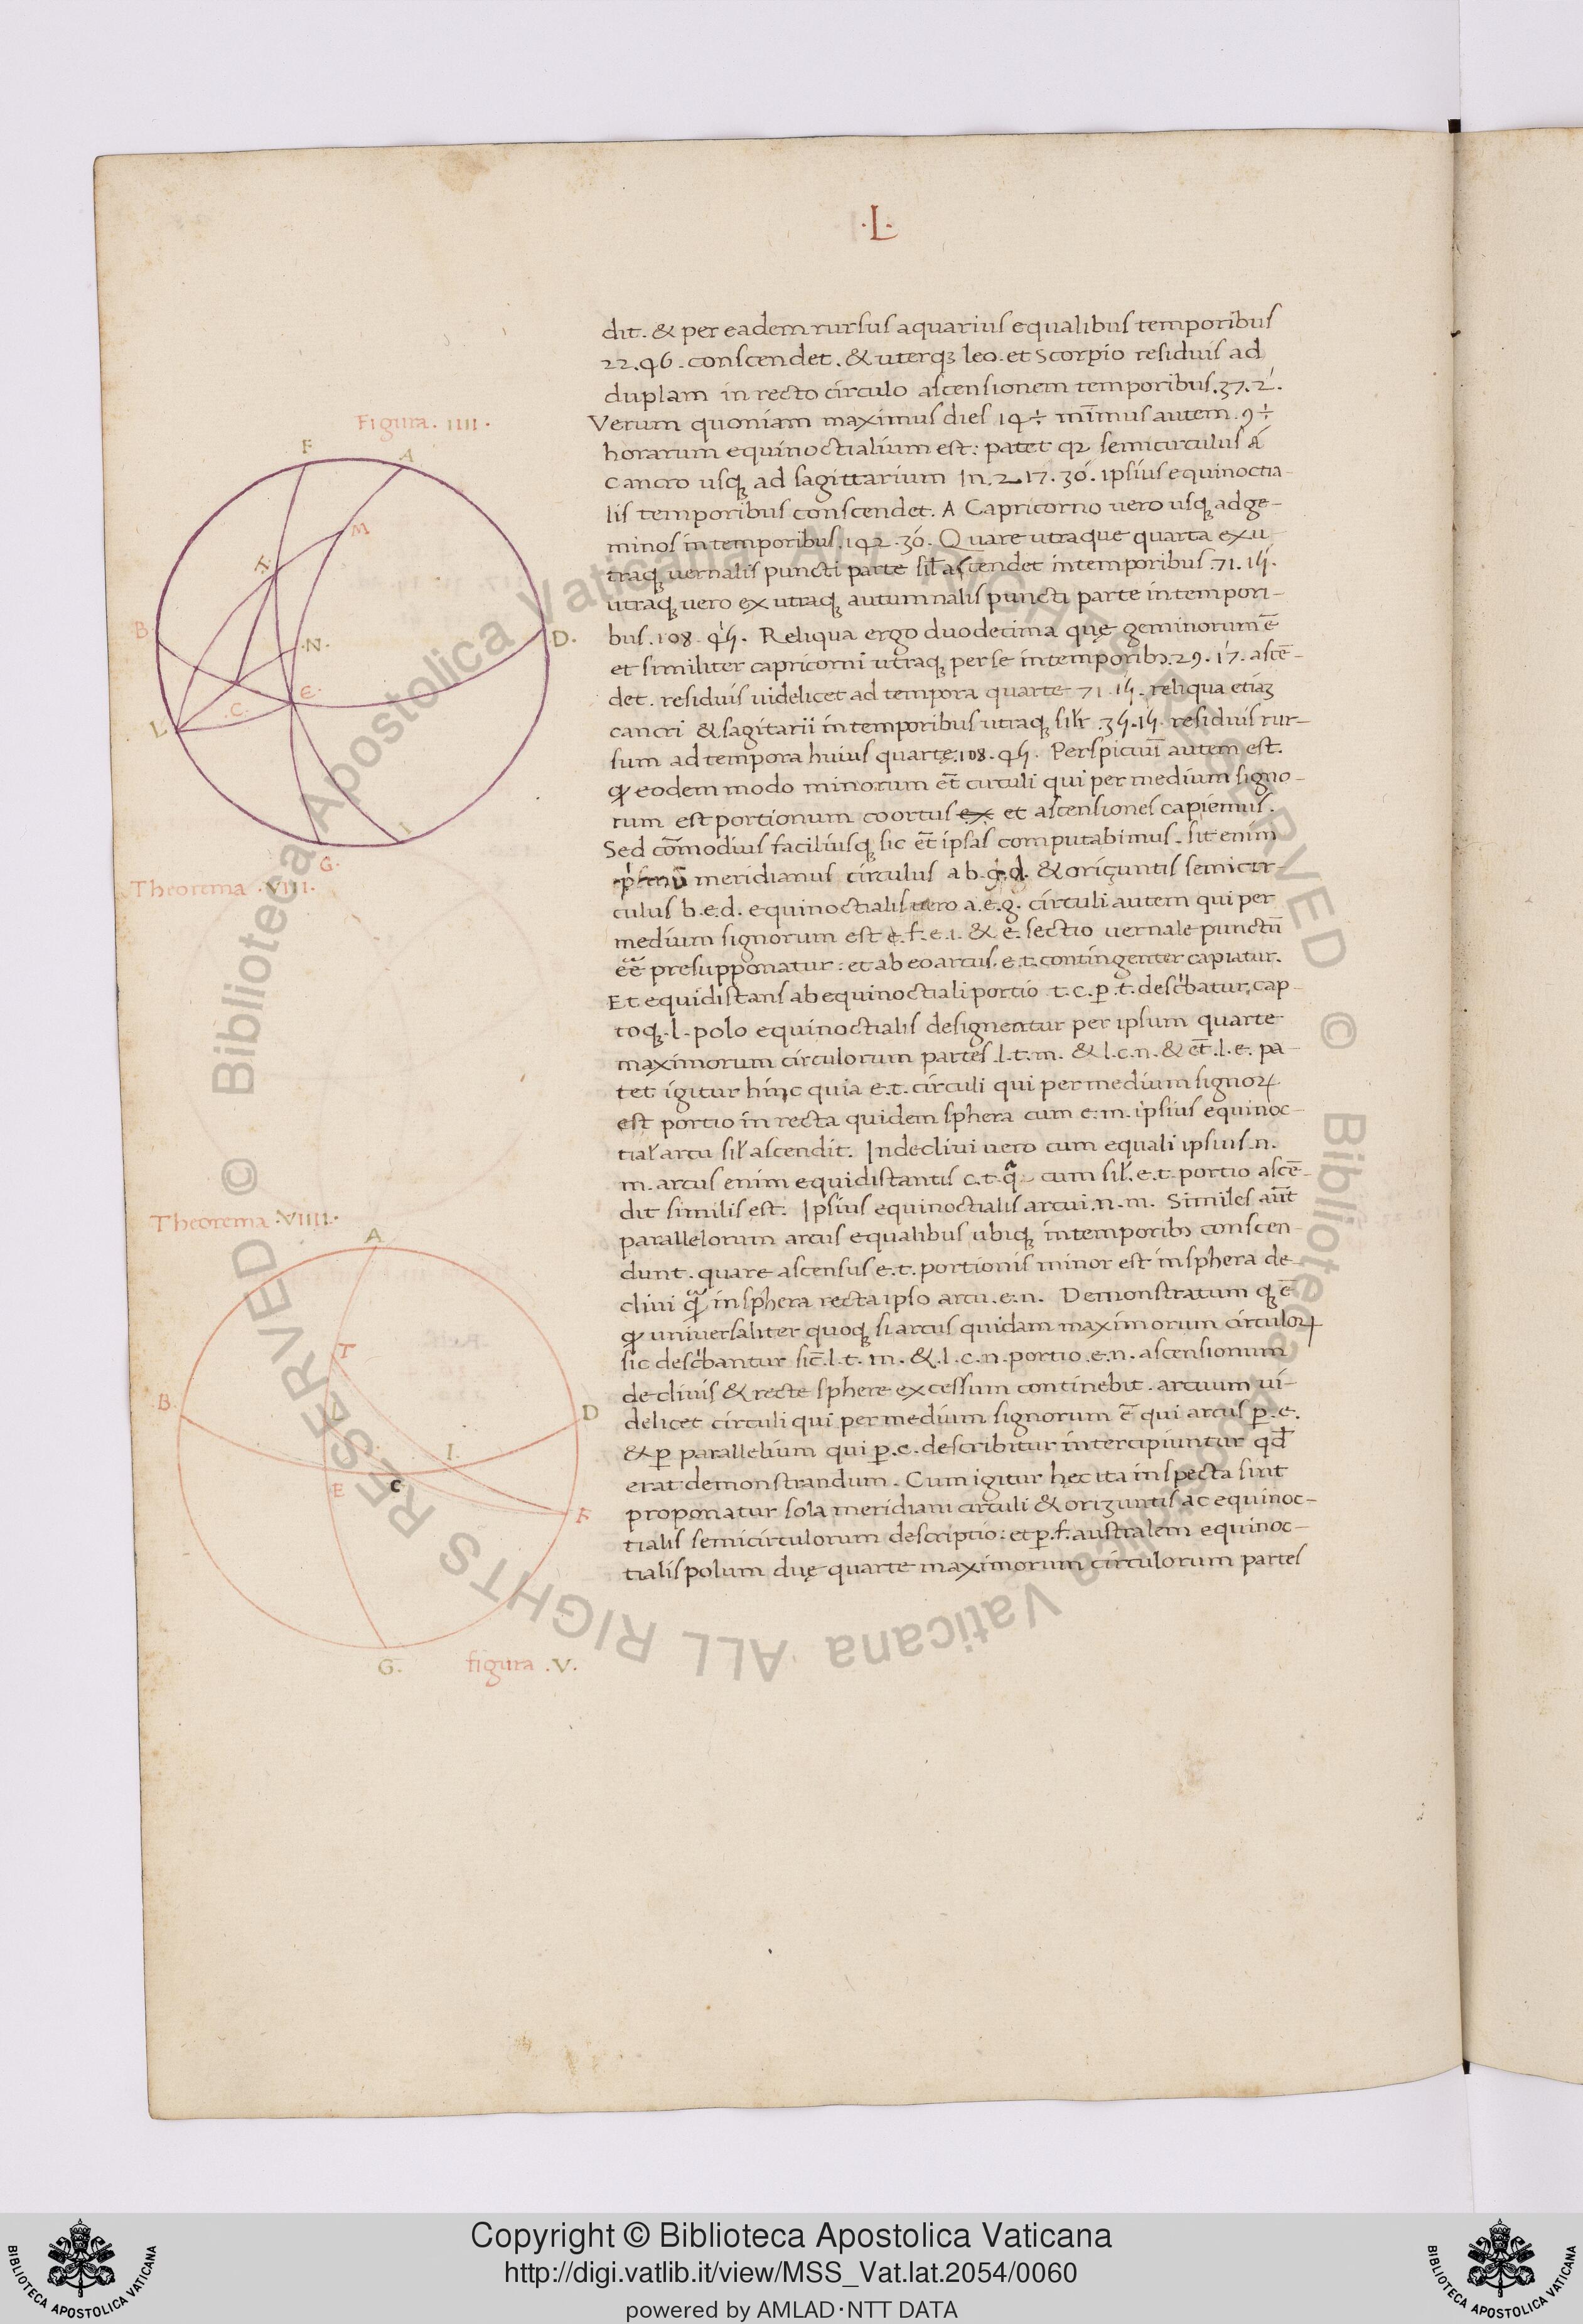 ·L·
dit. & per eadem rursus aquarius equalibus temporibus
22.46. conscendet. & uterqꝫ leo. et Scorpio residuis ad
duplam in recto circulo ascensionem temporibus.37.2.
Verum quoniam maximus dies 14÷ mīmus autem.9÷
horarum equinoctialium est: patet semicirculus á
Cancro usqꝫ ad sagittarium In.217.30. ipsius equinoctia-
lis temporibus conscendet. A Capricorno uero usqꝫ ad ge-
minos in temporibus.142.30. Quare utraque quarta ex u-
traqꝫ uernalis puncti parte sil̄ ascendet in temporibus.71.15.
utraqꝫ uero ex utraqꝫ autumnalis puncti parte in tempori-
bus.108.45. Reliqua ergo duodecima quę geminorum ē
et similiter capricorni utraqꝫ per se in temporibꝰ.29.17. ascē-
det. residuis uidelicet ad tempora quarte 71.15. reliqua etiaꝫ
cancri & sagitarii in temporibus utraqꝫ sil̄r.35.15. residuis rur-
sum ad tempora huius quartę.108.45. Perspicuū autem est.
ꝙ eodem modo minorum et̄ circuli qui per medium signo-
rum est portionum coortus ex et ascensiones capiemus.
Sed cōmodius faciliusqꝫ sic et̄ ipsas computabimus. sit enim
meridianus circulus a b.g.d. & oriçuntis semicir-
culus b.e.d. equinoctialis uero a.e.g. circuli autem qui per
medium signorum est f.e.i. & e. sectio uernale punctū
eē presupponatur: et ab eo arcus.e.t. contingenter capiatur.
Et equidistans ab equinoctiali portio t.c. ꝑ.t. describatur, cap-
toqꝫ.l. polo equinoctialis designentur per ipsum quarte
maximorum circulorum partes.l.t.m. & l.c.n. & et̄.l.e. pa-
tet igitur hinc quia e.t. circuli qui per medium signoꝝ
est portio in recta quidem sphera cum e.m. ipsius equinoc-
tial̄ arcu sil̄ ascendit. In decliui uero cum equali ipsius.n.
m. arcus enim equidistantis c.t. cum sil̄.e.t. portio ascē-
dit similis est. Ipsius equinoctialis arcui.n.m. Similes aūt
parallelorum arcus equalibus ubiqꝫ in temporibꝰ conscen-
dunt. quare ascensus e.t. portionis minor est in sphera de-
cliui in sphera recta ipso arcu.e.n. Demonstratum qꝫ ē
ꝙ uniuersaliter quoqꝫ si arcus quidam maximorum circuloꝝ
sic describantur sic̄.l.t.m. &.l.c.n. portio.e.n. ascensionum
decliuis & recte sphere excessum continebit. arcuum ui-
delicet circuli qui per medium signorum ē qui arcus ꝑ.e.
& ꝑ parallelium qui ꝑ.c. describitur intercipiuntur qd̄
erat demonstrandum. Cum igitur hec ita inspecta sint
proponatur sola meridiani circuli & orizuntis ac equinoc-
tialis semicirculorum descriptio: et ꝑ.f. australem equinoc-
tialis polum duę quarte maximorum circulorum partes
Figura.IIII.
F
A
M
T
B
N
D.
E
C
L
I
G.
Theorema.VIII.
Theorema.VIIII.
A
T
B
D
I
E
C
F
G.
figura.V.
© Biblioteca Apostolica Vaticana ALL RIGHTS RESERVED © Biblioteca Apostolica Vaticana ALL RIGHTS RESERVED
BIBLIOTECA APOSTOLICA VATICANA
Copyright © Biblioteca Apostolica Vaticana
http://digi.vatlib.it/view/MSS_Vat.lat.2054/0060
powered by AMLAD·NTT DATA
BIBLIOTECA APOSTOLICA VATICANA